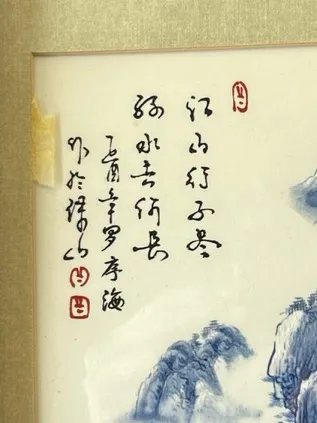 江山行不尽
绿水去何长
乙酉年罗序海
作於珠山